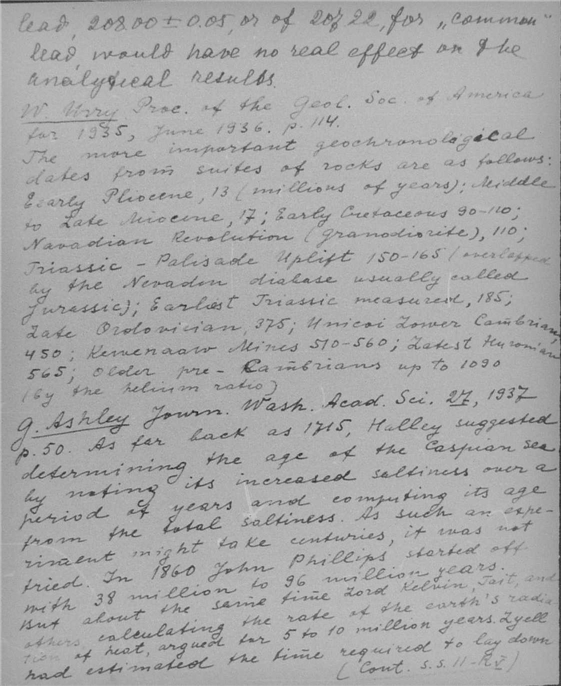 lead, 208.00 ± 0.05, or of 207.22, for „common"
lead, would have no real effect on the
analytical results.
W. Urry. Proc. of the Geol. Soc. of America
for 1935, June 1936. p. 114.
The more important geochronological
dates from suites of rocks are as follows:
Early Pliocene, 13 (millions of years); Middle
to Late Miocene, 17; Early Cretaceous 90-110;
Navadian Revolution (granodiorite), 110;
Triassic - Palisade Uplift 150-165 (overlapped
by the Nevadan diabase usually called
Jurassic); Earlest Triassic measured, 185;
Late Ordovician, 375; Unicoi Lower Cambrian,
450; Keweenaaw Mines 510-560; Latest Huronian
565; Older pre-Cambrians up to 1090
(by the helium ratio)
G. Ashley Journ. Wash. Acad. Sci. 27, 1937
p. 50. As far back as 1715, Halley suggested
determining the age of the Caspian sea
by noting its increased saltiness over a
period of years and computing its age
from the total saltiness. As such an expe-
riment might take centuries, it was not
tried. In 1860 John Phillips started off
with 38 million to 96 million years.
But about the same time Lord Kelvin, Tait, and
others calculating the rate of the earth's radia
tion of heat, argued for 5 to 10 million years. Lyell
had estimated the time required to lay down
(Cont. s.s. 11-